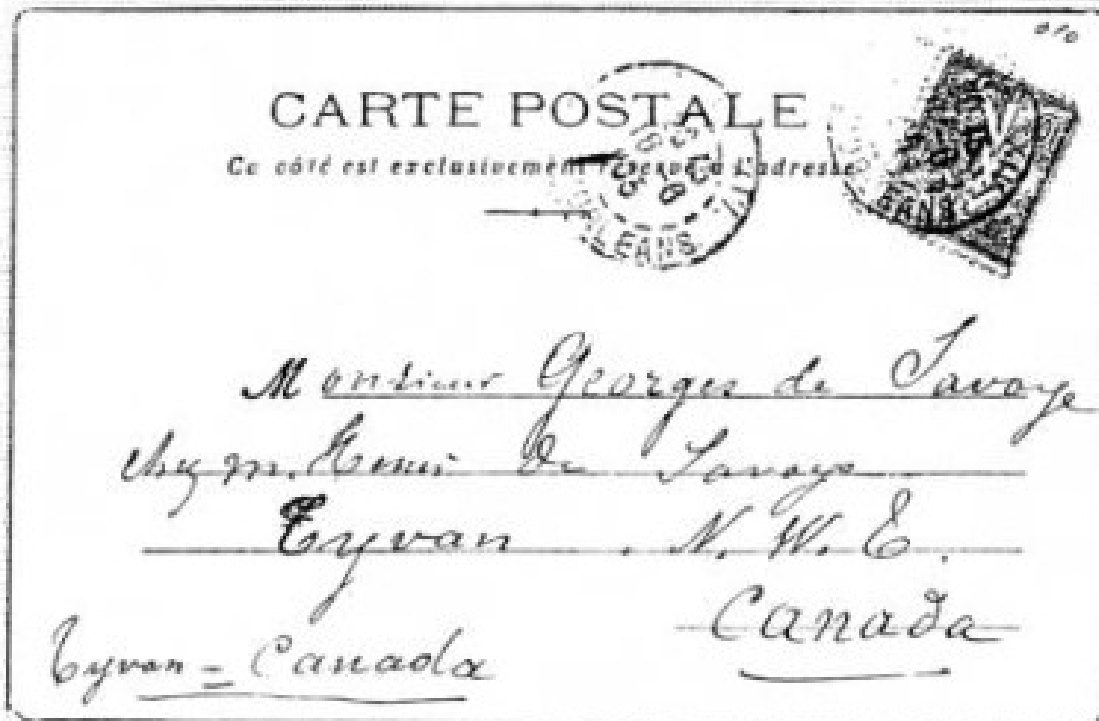 CARTE POSTALE
Ce côté est exclusivement réservé à l'adresse
ORLEANS
Monsieur Georges de Savoye
chez M. de Savoye
Tyvan. N. W. E.
Canada
Tyvan = Canada